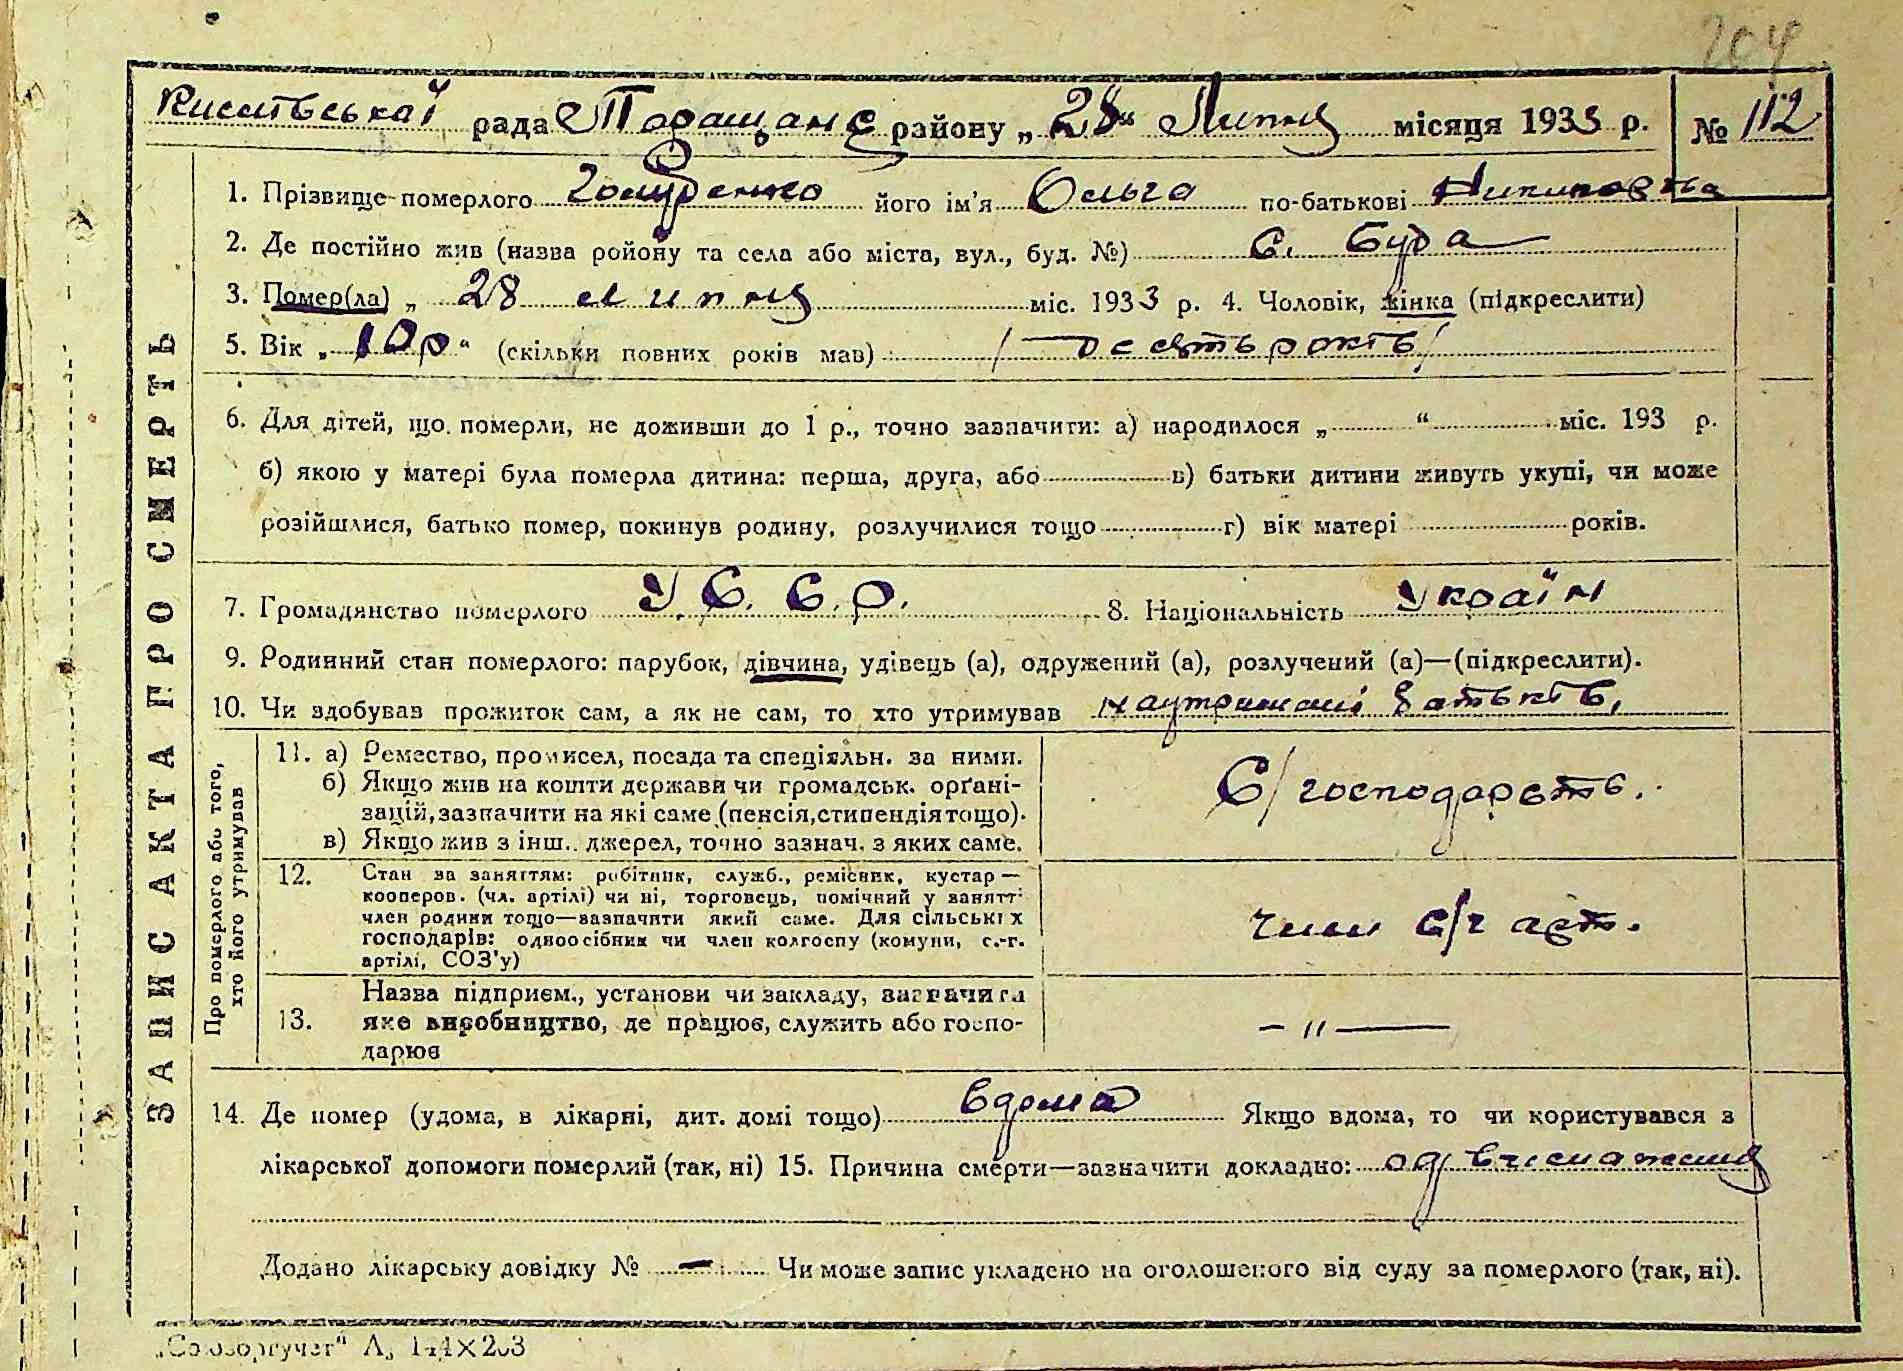 204
рада Таращанс району „28“ Липня місяця 1933 р. № 112
ЗАПИС АКТА ПРО СМЕРТЬ
1. Прізвище померлого Голубенко його ім'я Ольга по-батькові Никипорівна
2. Де постійно жив (назва ройойу та села або міста, вул., буд. №) С. Буда
3. Помер(ла) „ 28 липня міс. 1933 р. 4. Чоловік, жінка (підкреслити)
5. Вік „10р“ (скільки повних років мав) /десять років/
6. Для дітей, що померли, не доживши до 1 р., точно зазначити: а) народилося „ “ міс. 193 р.
б) якою у матері була померла дитина: перша, друга, або в) батьки дитини живуть укупі, чи може
розійшлися, батько помер, покинув родину, розлучилися тощо г) вік матері років.
7. Громадянство померлого У.С.С.Р. 8. Національність Україн
9. Родинний стан померлого: парубок, дівчина, удівець (а), одружений (а), розлучений (а)—(підкреслити).
10. Чи здобував прожиток сам, а як не сам, то хто утримував на утриманні батьків,
Про померлого або того,
хто його утримував
11. а) Ремество, промисел, посада та спеціяльн. за ними.
б) Якщо жив на кошти держави чи громадськ. орґані-
зацій, зазначити на які саме (пенсія, стипендія тощо).
в) Якщо жив з інш. джерел, точно зазнач. з яких саме.
С/господарств.
12. Стан за заняттям: робітник, служб., ремісник, кустар—
кооперов. (чл. артілі) чи ні, торговець, помічний у занятті
член родини тощо—зазначити який саме. Для сільських
господарів: одноосібник чи член колгоспу (комуни, с.-г.
артілі, СОЗ'у)
член с/г арт.
Назва підприєм., установи чи закладу, зазначити
13. яке виробництво, де працює, служить або госпо-
дарює
— „ —
14. Де помер (удома, в лікарні, дит. домі тощо) вдома Якщо вдома, то чи користувався з
лікарської допомоги померлий (так, ні) 15. Причина смерти—зазначити докладно: од виснаження
Додано лікарську довідку № — Чи може запис укладено на оголошеного від суду за померлого (так, ні).
„Союзоргучет“ А, 144×203